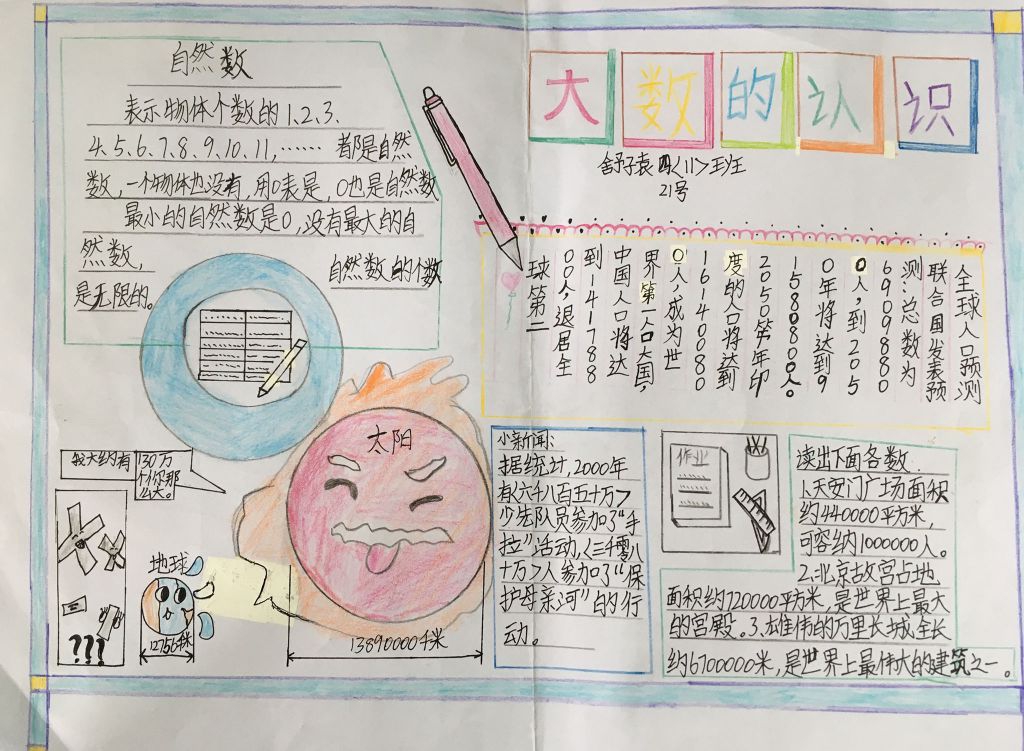 自然数
表示物体个数的1、2、3、
4、5、6、7、8、9、10、11,…… 都是自然
数,一个物体也没有,用0表是,0也是自然数
最小的自然数是0,没有最大的自
然数, 自然数的个数
是无限的。
大数的认识
舒子袁 四<11>班
21号
全球人口预测
联合国发表预
测:总数为
6909880
0人,到205
0年将达到9
1580800人。
2050第年印
度的人口将达到
16140080
0人,成为世
界第一人口大国,
中国人口将达
到141788
00人,退居全
球第二
太阳
我大约有130万
个你那
么大。
???
地球
12756千米
13890000千米
小新闻:
据统计,2000年
有<六千八百五十万>
少先队员参加了“手
拉”活动,<三千零八
十万>人参加了“保
护母亲河”的行
动。
作业
读出下面各数.
1、天安门广场面积
约440000平方米,
可容纳1000000人。
2.北京故宫占地
面积约720000平方米,是世界上最大
的宫殿。3.雄伟的万里长城全长
约6700000米,是世界上最伟大的建筑之一。